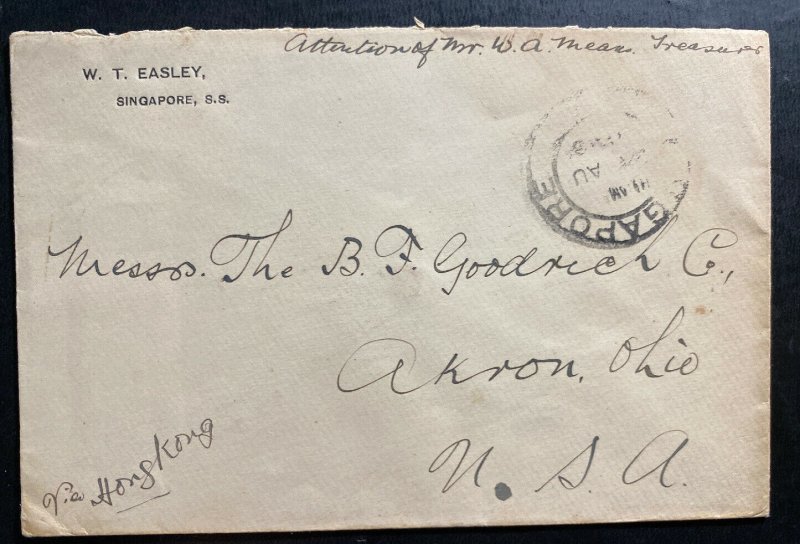 Attention of Mr. W. A. Means. Treasurer
W. T. EASLEY,
SINGAPORE, S.S.
GAPORE
AM
AU
Messrs. The B. F. Goodrich Co.,
Akron, Ohio
U. S. A.
Via Hongkong